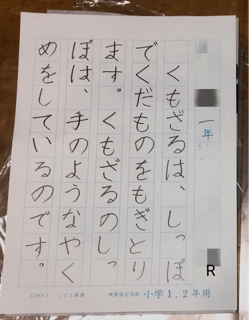 一年
R
くもざるは、しっぽ
でくだものをもぎとり
ます。くもざるのしっ
ぽは、手のようなやく
めをしているのです。
小学1.2年用